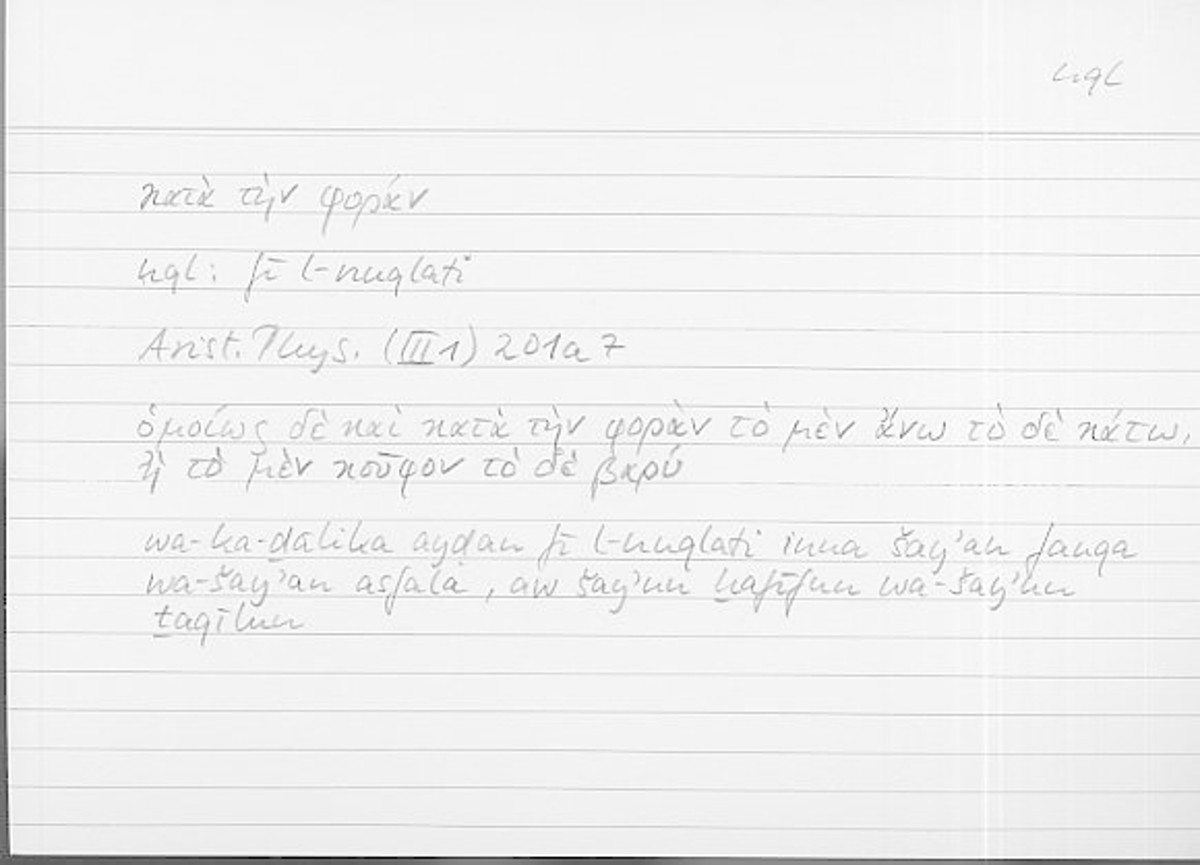 nql
κατὰ τὴν φοράν
nql: fī l-nuqlati
Arist. Phys. (III 1) 201a7
ὁμοίως δὲ καὶ κατὰ τὴν φορὰν τὸ μὲν ἄνω τὸ δὲ κάτω,
ἢ τὸ μὲν κοῦφον τὸ δὲ βαρύ
wa-ka-ḏalika ayḍan fī l-nuqlati inna šay'an fauqa
wa-šay'an asfala, aw šay'un ḫafīfun wa-šay'un
ṯaqīlun